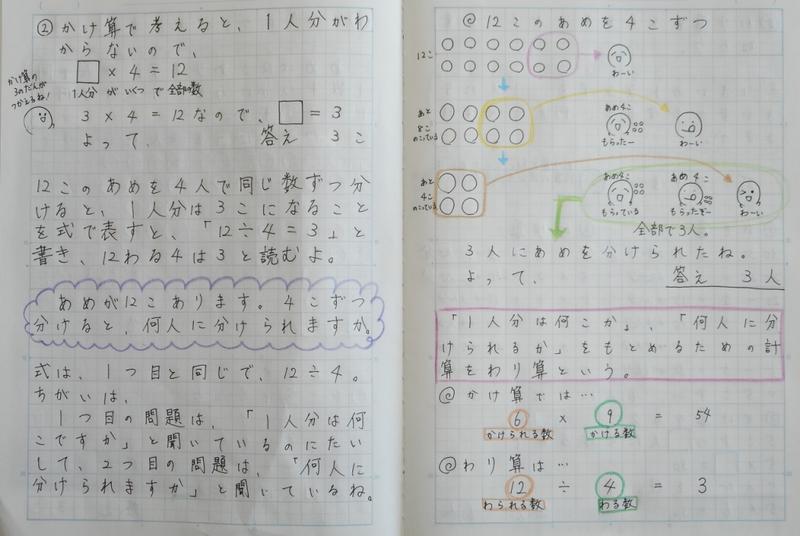 ② かけ算で考えると、1人分がわ
からないので、
□ × 4 = 12
1人分 が いくつ で 全部の数
かけ算の
3のだんが
つかえるね!
3 × 4 = 12 なので、□ = 3
よって、 答え 3こ
12このあめを4人で同じ数ずつ分
けると、1人分は3こになること
を式で表すと、「12÷4=3」と
書き、12わる4は3と読むよ。
あめが12こあります。4こずつ
分けると、何人に分けられますか。
式は、1つ目と同じで、12÷4。
ちがいは、
1つ目の問題は、「1人分は何
こですか」と聞いているのにたい
して、2つ目の問題は、「何人に
分けられますか」と聞いているね。
@ 12このあめを4こずつ
12こ
わーい
あと
8こ
のこっている
あめ4こ
もらったー
わーい
あと
4こ
のこっている
あめ4こ
もらっている
あめ4こ
もらったぞー
わーい
全部で3人。
3人にあめを分けられたね。
よって、 答え 3人
「1人分は何こか」、「何人に分
けられるか」をもとめるための計
算をわり算という。
@ かけ算では…
6 × 9 = 54
かけられる数 かける数
@ わり算は…
12 ÷ 4 = 3
わられる数 わる数